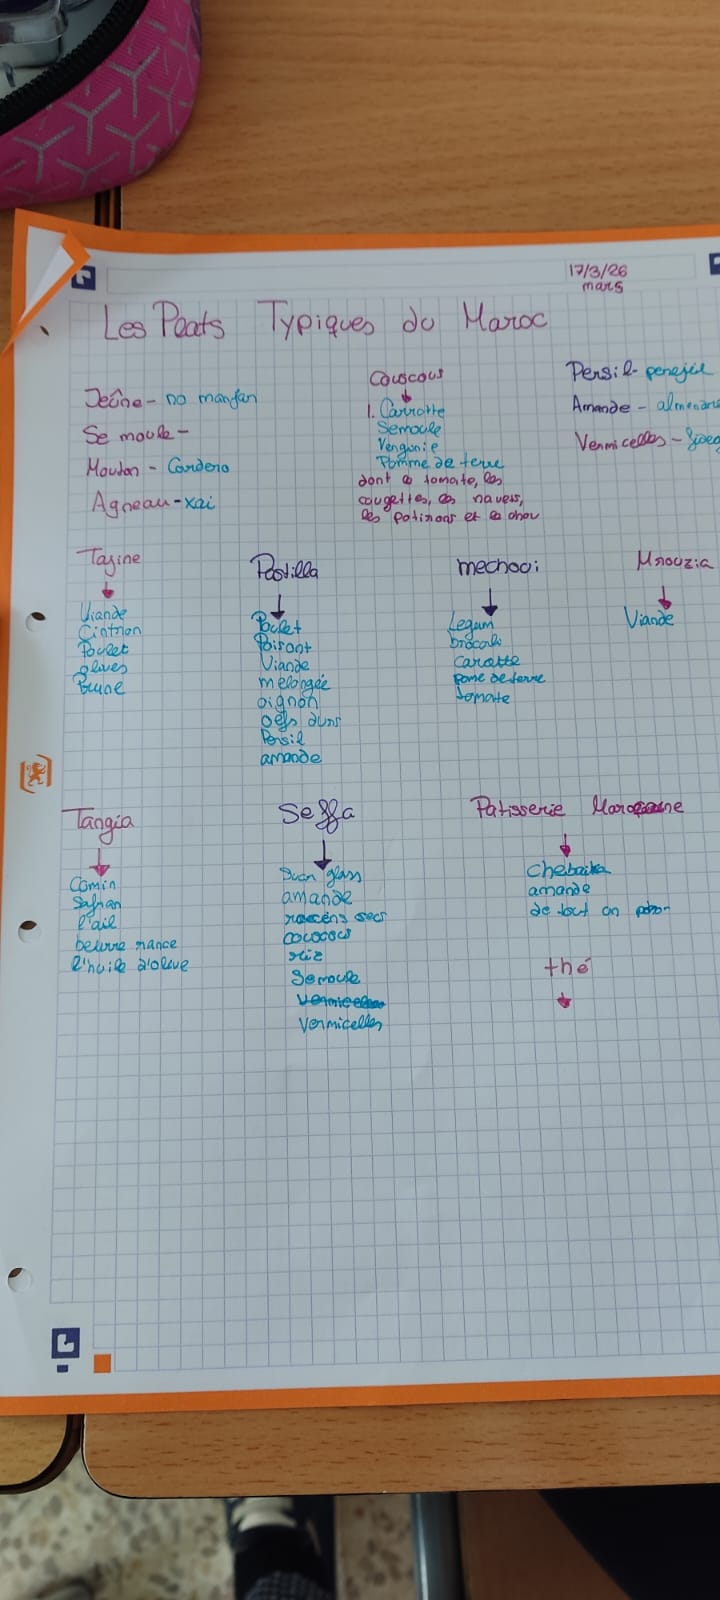 17/3/26
mars
Les Plats Typiques du Maroc
Jeûne - no manjan
Se moule -
Mouton - Cordero
Agneau - xai
Couscous
1. Carrotte
Semoule
Pomme de terre
dont a tomate, les
cougettes, les navets,
les potirons et a chou
Persil - perejil
Amande -
Vermicelles -
Tajine
Viande
Cintrion
Poulet
olives
Prune
Pastilla
Poulet
Poisont
Viande
melongée
oignon
oefs durs
Persil
amande
mechoui
Legum
brocoli
Carotte
pome de terre
tomate
Mrouzia
Viande
Tangia
Comin
Safran
l'ail
beurre rance
l'huile d'olive
Seffa
Sucn glass
amande
secs
cococos
riz
Semoule
Vermicelles
Patisserie Marocaine
Chebaika
amande
de tout on
thé